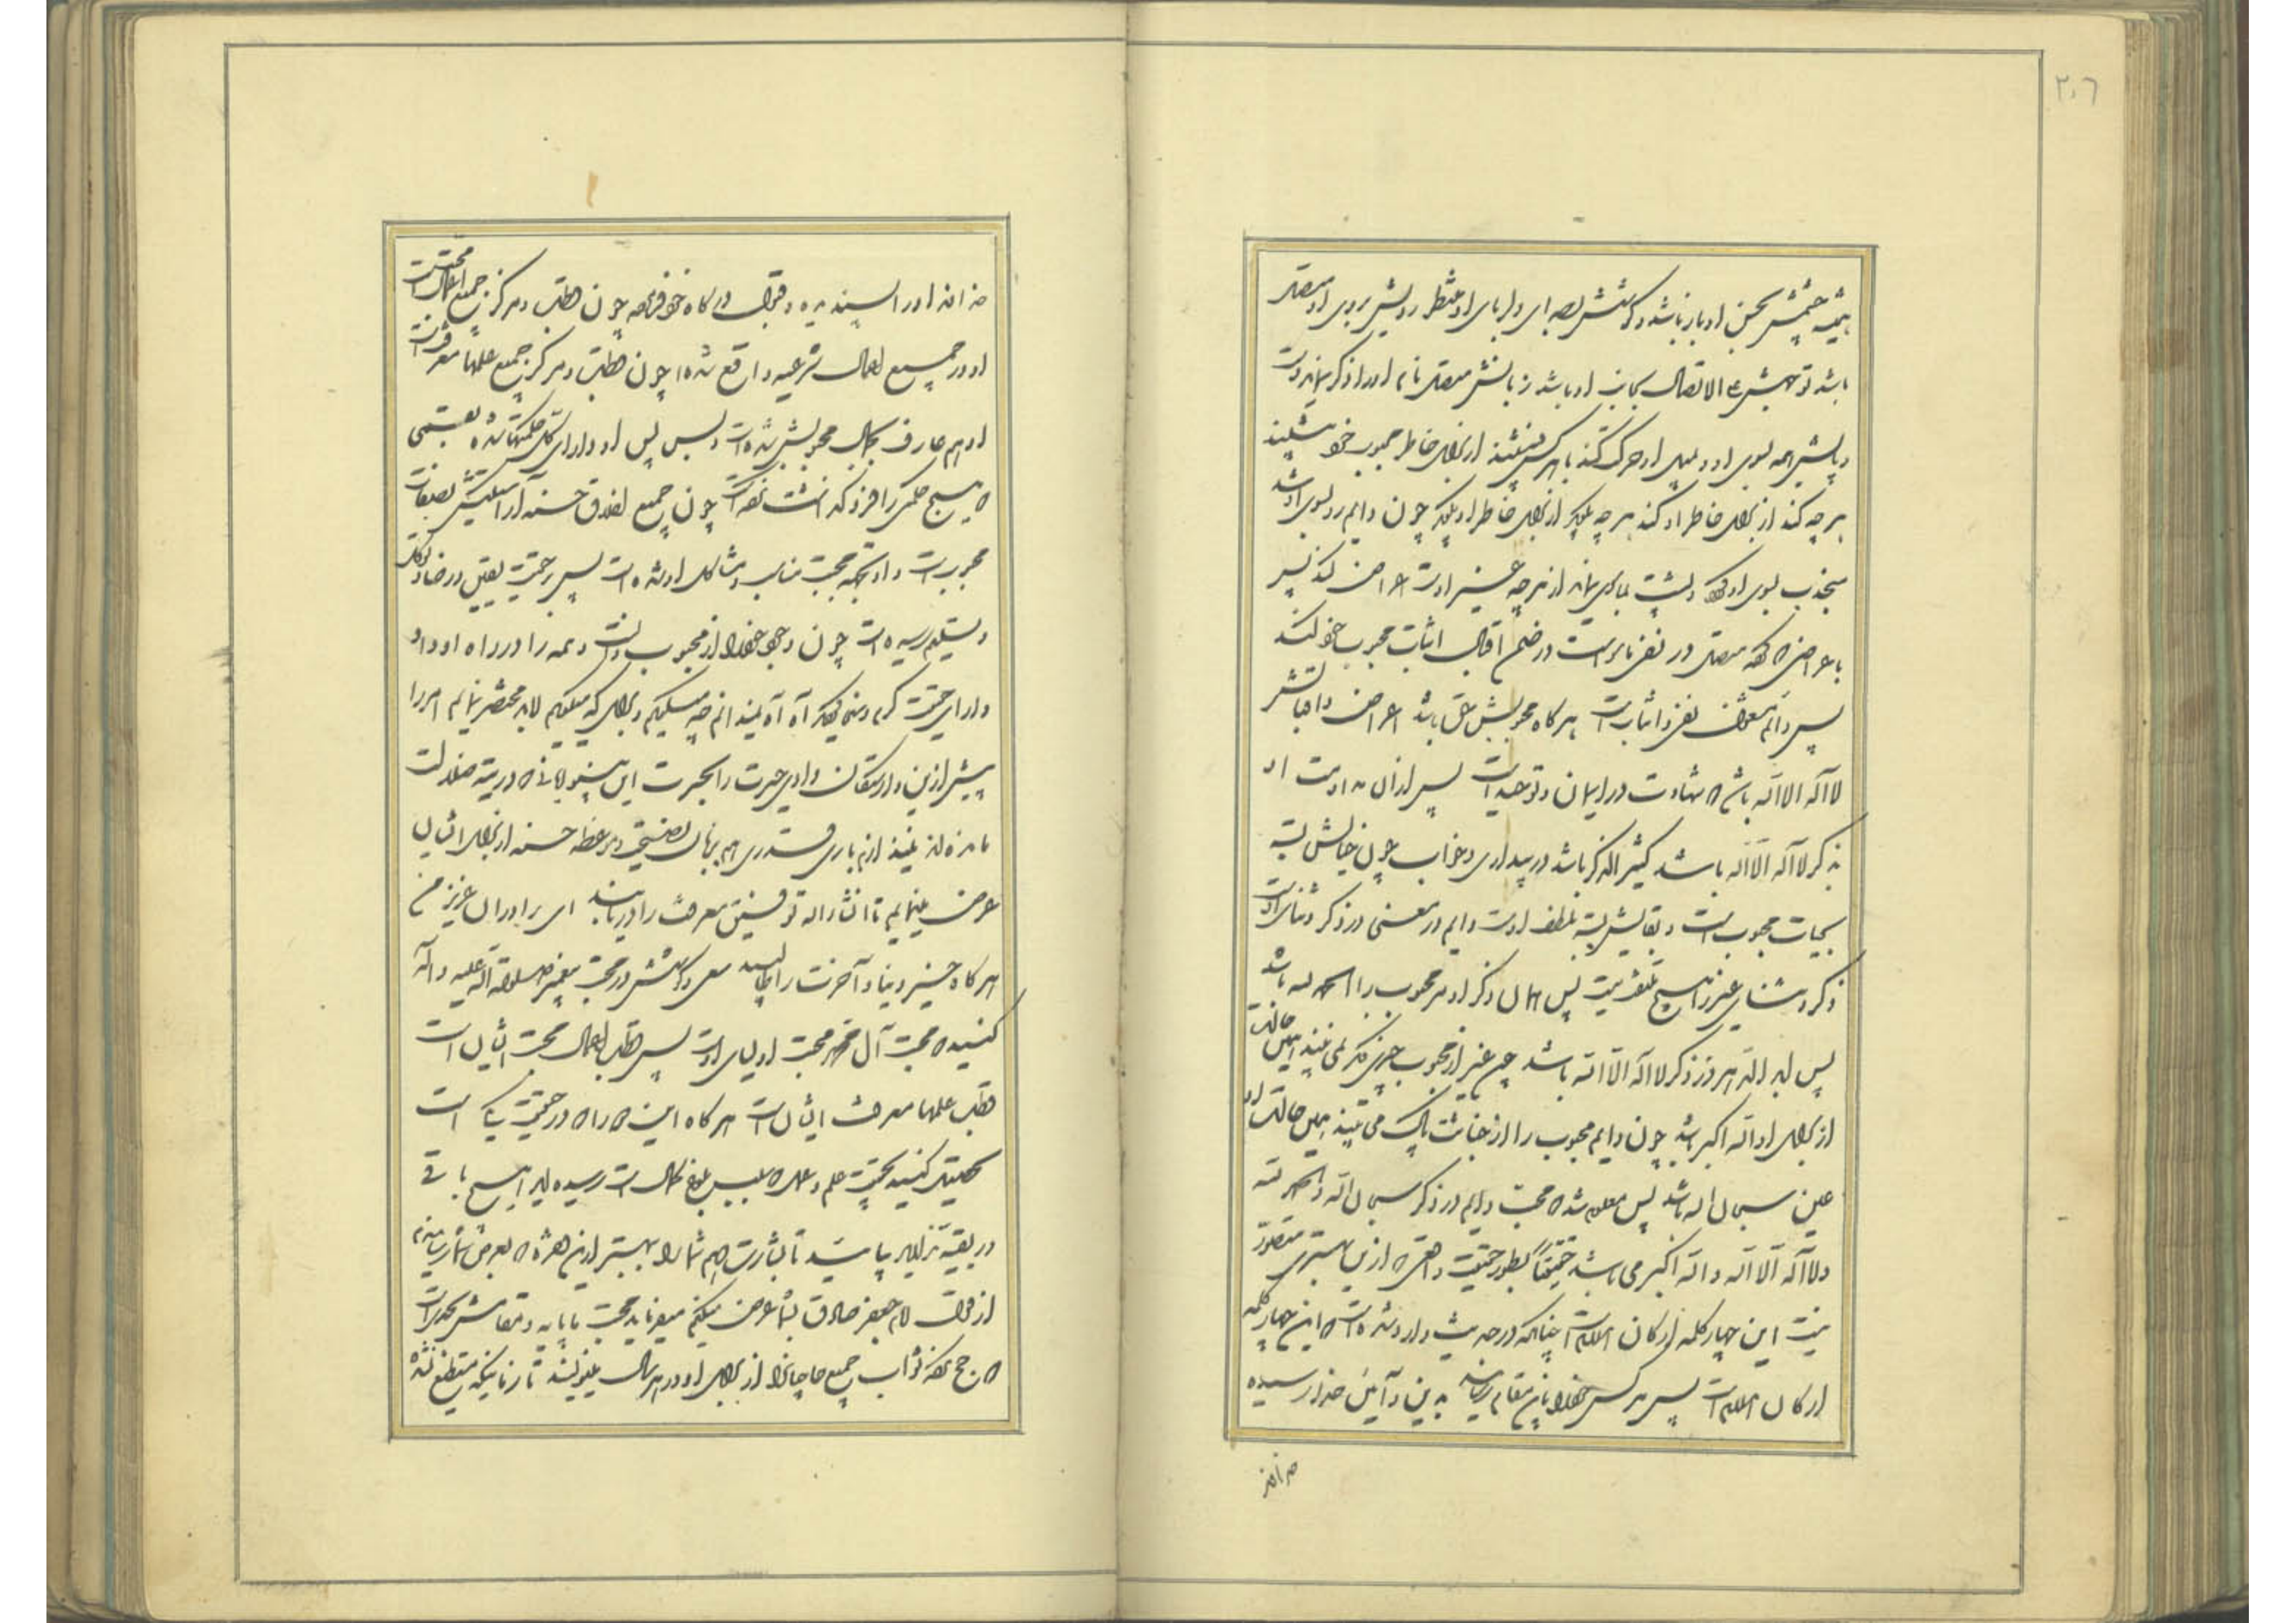 ۲۰۶
همیشه چشمش بحسن او باز باشد و گوشش بصدای دلربای او منتظر رویش بروی او متصل
باشد توجهش علی الاتصال بجانب او باشد زبانش متصل نام او را ذکر
و پایش همه بسوی او و بمیل او حرکت کند با هر کس بنشیند از برای خاطر محبوب خود بنشیند
هر چه کند از برای خاطر او کند هر چه بگوید از برای خاطر او بگوید چون دایم رو بسوی او باشد
منجذب بسوی او و پشت بماسوی از هر چه غیر اوست اعراض کند پس
باعراض که متصل در نفی ماسواست در ضمن اقبال اثبات محبوب خود کند
پس دائم مشغول نفی و اثبات است هر گاه محبوبش حق باشد اعراض و اقبالش
لا اله الا الله باشد که شهادت در ایمان و توحید است پس از آن مداومت او
بذکر لا اله الا الله باشد کثیر الذکر باشد در بیداری و خواب چون حیاتش بسته
بحیات محبوب است و بقایش بسته بلطف اوست دایم در معنی در ذکر و ثنای اوست
ذکر و ثنای غیر را هیچ ملتفت نیست پس همان ذکر او مر محبوب را الحمد لله باشد
پس لله الحمد هر روز ذکر لا اله الا الله باشد چون غیر از محبوب چیزی دیگر نمی بیند همین حالت
از برای او الله اکبر باشد چون دایم محبوب را از خباثت پاک می بیند همین حالت او
عین سبحان الله باشد پس معلوم شد که محبت دایم در ذکر سبحان الله و الحمد لله
و لا اله الا الله و الله اکبر می باشد حقیقتاً بطور حقیقت و از این بهتر متصور
نیست این چهار کلمه ارکان اسلام است چنانکه در حدیث وارد شده است که این چهار کلمه
ارکان اسلام است پس هر کس خود را باین مقام رساند بدین و آئین خدا رسیده
خدا او را
خدا او را پسندیده و قبول درگاه خود فرموده چون قطب و مرکز جمیع اعمال محبت است
او در جمیع اعمال شرعیه واقع شده چون قطب و مرکز جمیع علمها معرفت است
او هم عارف بکمال محبوبش شده است و بس پس او دارای کل حکمتها شده بقسمی
که هیچ حکمی را فرو گذاشت نکرده است چون جمیع اخلاق حسنه آراستگیش بصفات
محبوب است و او بجهت محبت مناسب و مشاکل او شده است پس بر حقیقت یقین و رضا و توکل
و تسلیم رسیده است چون وجود خود را از محبوب دانست و همه را در راه او داد
دارای حقیقت کرم و سخا گردید آه آه نمیدانم چه میگویم و برای که میگویم لابد مختصر نمایم امر را
پیش از این وارستگان وادی حیرت را بحیرت این بینوایان که در تیه ضلالت
مانده اند نیندازیم باری قدری هم بزبان نصیحت و موعظه حسنه از برای ایشان
عرض مینمایم تا انشاء الله توفیق معرفت را دریابند ای برادران عزیز من
هر گاه خیر دنیا و آخرت را طالبید سعی و کوشش در محبت پیغمبر صلوات الله علیه و آله
کنید که محبت آل محمد محبت اولیای اوست پس قطب اعمال محبت ایشان است
قطب علمها معرفت ایشان است هر گاه این که راه در حقیقت یکی است
تحصیل کنید بحقیقت علم و عمل که سبب بلوغ کمال است رسیده اید هیچ باقی
در بقیه نزائید بیائید تا بشارت دهم شما را بهتر از این مژده که بعرض شما رسانیدم
از قول امام جعفر صادق بشما عرض میکنم میفرماید محبت ما پایه و مقامش
که حج نکرده ثواب جمیع حاجیان را از برای او در هر سال بنویسند تا زمانیکه منقطع نشده